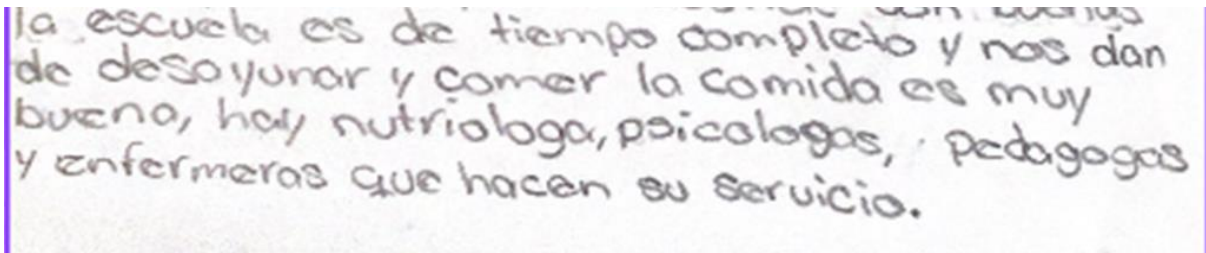 la escuela es de tiempo completo y nos dan
de desayunar y comer la comida es muy
bueno, hay nutriologa, psicologas, pedagogas
y enfermeras que hacen su servicio.